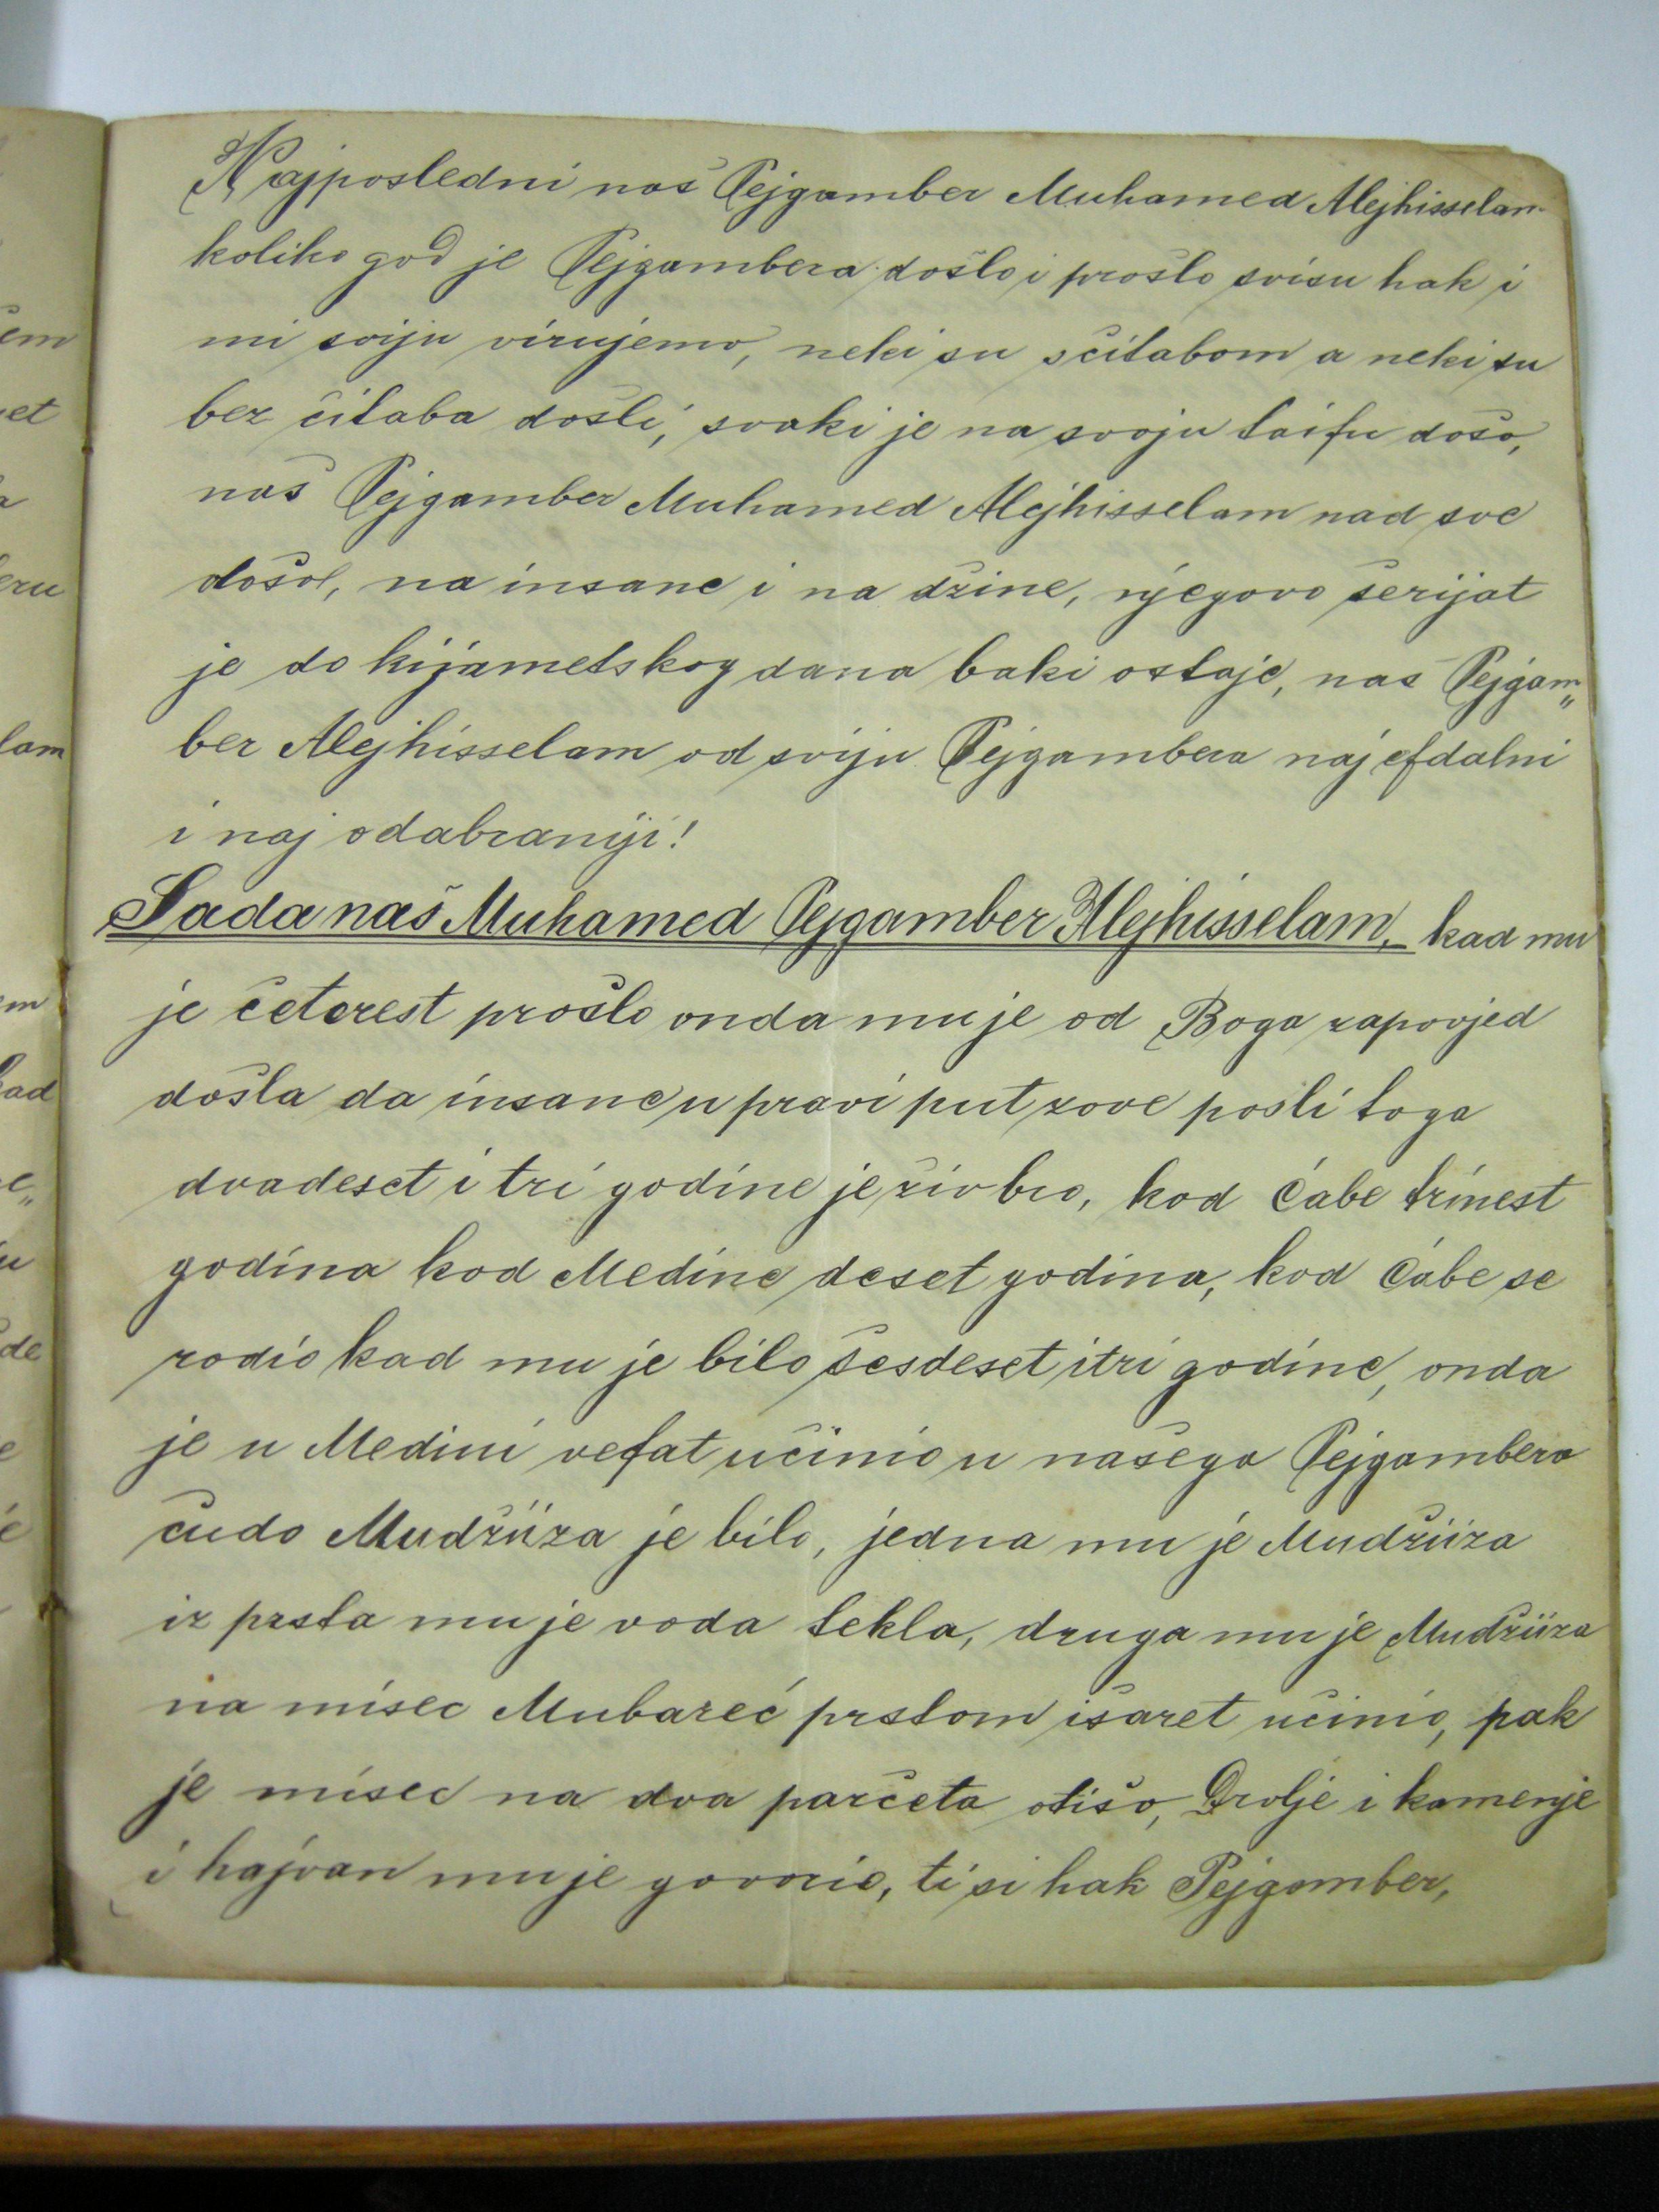 Najposledni naš Pejgamber Muhamed Alejhisselam
koliko god je Pejgambera došlo i prošlo svisu hak i
mi sviju virujemo, neki su sćitabom a neki su
bez ćitaba došli, svaki je na svoju taifu došo,
naš Pejgamber Muhamed Alejhisselam nad sve
došol, na insane i na džine, njegovo šerijat
je do kijametskog dana baki ostaje, naš Pejgam„
ber Alejhisselam od sviju Pejgambera naj efdalni
i naj odabraniji!
Sada naš Muhamed Pejgamber Alejhisselam, kad mu
je četerest prošlo onda mu je od Boga zapovjed
došla da insane u pravi put zove posli toga
dvadeset i tri godine je živ bio, kod Ćabe trinest
godina kod Medine deset godina, kod Ćabe se
rodio kad mu je bilo šesdeset i tri godine, onda
je u Medini vefat učinio u našega Pejgambera
čudo Mudžiiza je bilo, jedna mu je Mudžiiza
iz prsta mu je voda tekla, druga mu je Mudžiiza
na misec Mubareć prstom išaret učinio, pak
je misec na dva parčeta otišo, Drvlje i kamenje
i hajvan mu je govorio, ti si hak Pejgamber,
em
et
a
eru
lam
em
kad
e„
u
de
e
é